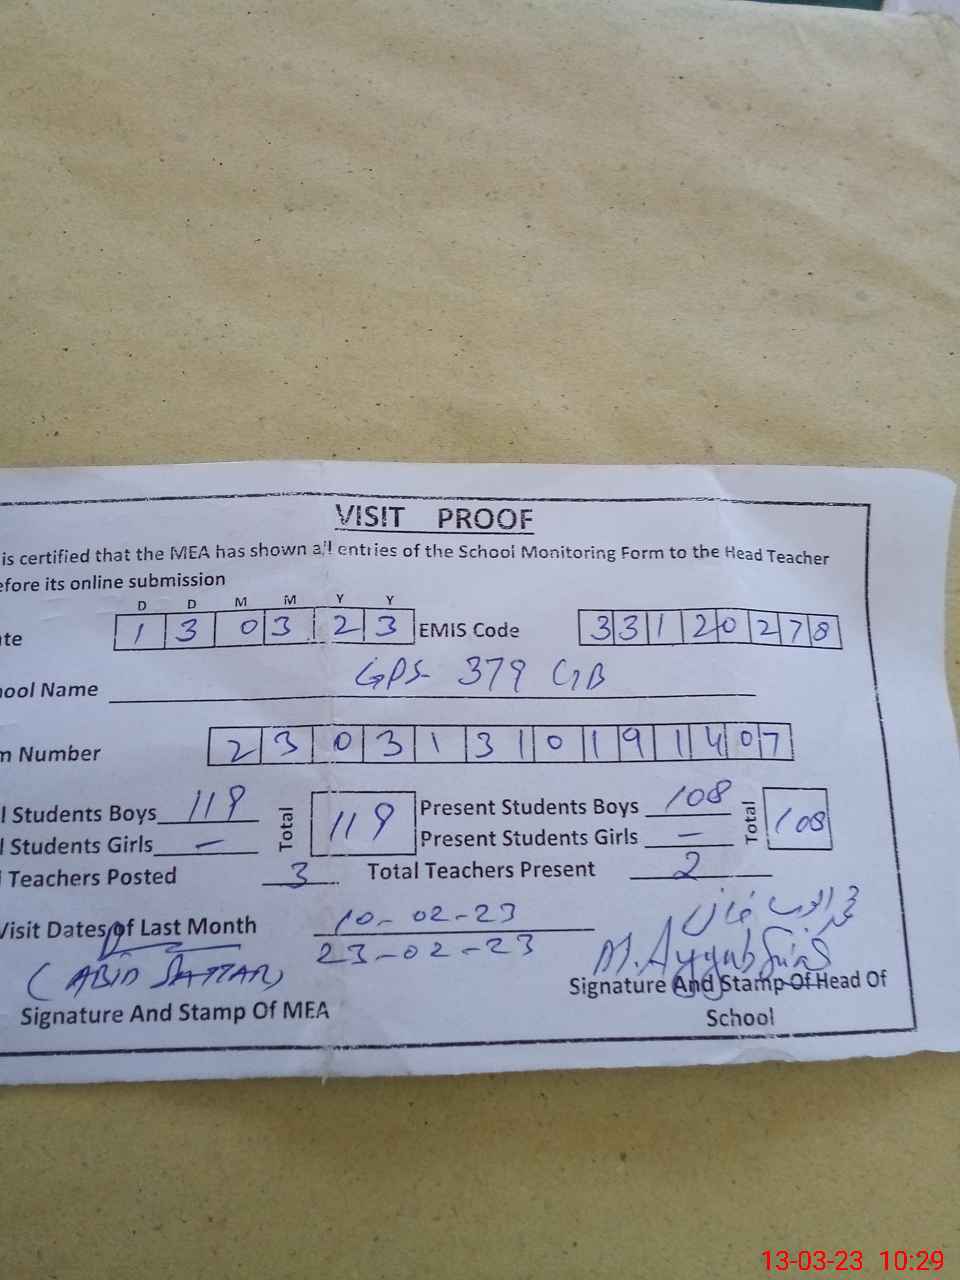 VISIT PROOF
is certified that the MEA has shown all entries of the School Monitoring Form to the Head Teacher
efore its online submission
D D M M Y Y
te 1 3 0 3 2 3 EMIS Code 3 3 1 2 0 2 7 8
ool Name GPS- 379 GB
m Number 2 3 0 3 1 3 1 0 1 9 1 4 0 7
l Students Boys 119 Total 119 Present Students Boys 108 Total 108
l Students Girls - Present Students Girls -
l Teachers Posted 3 Total Teachers Present 2
Visit Dates of Last Month 10-02-23
23-02-23
(ABID SATTAR) M. Ayyub
Signature And Stamp Of MEA Signature And Stamp Of Head Of
School
13-03-23 10:29